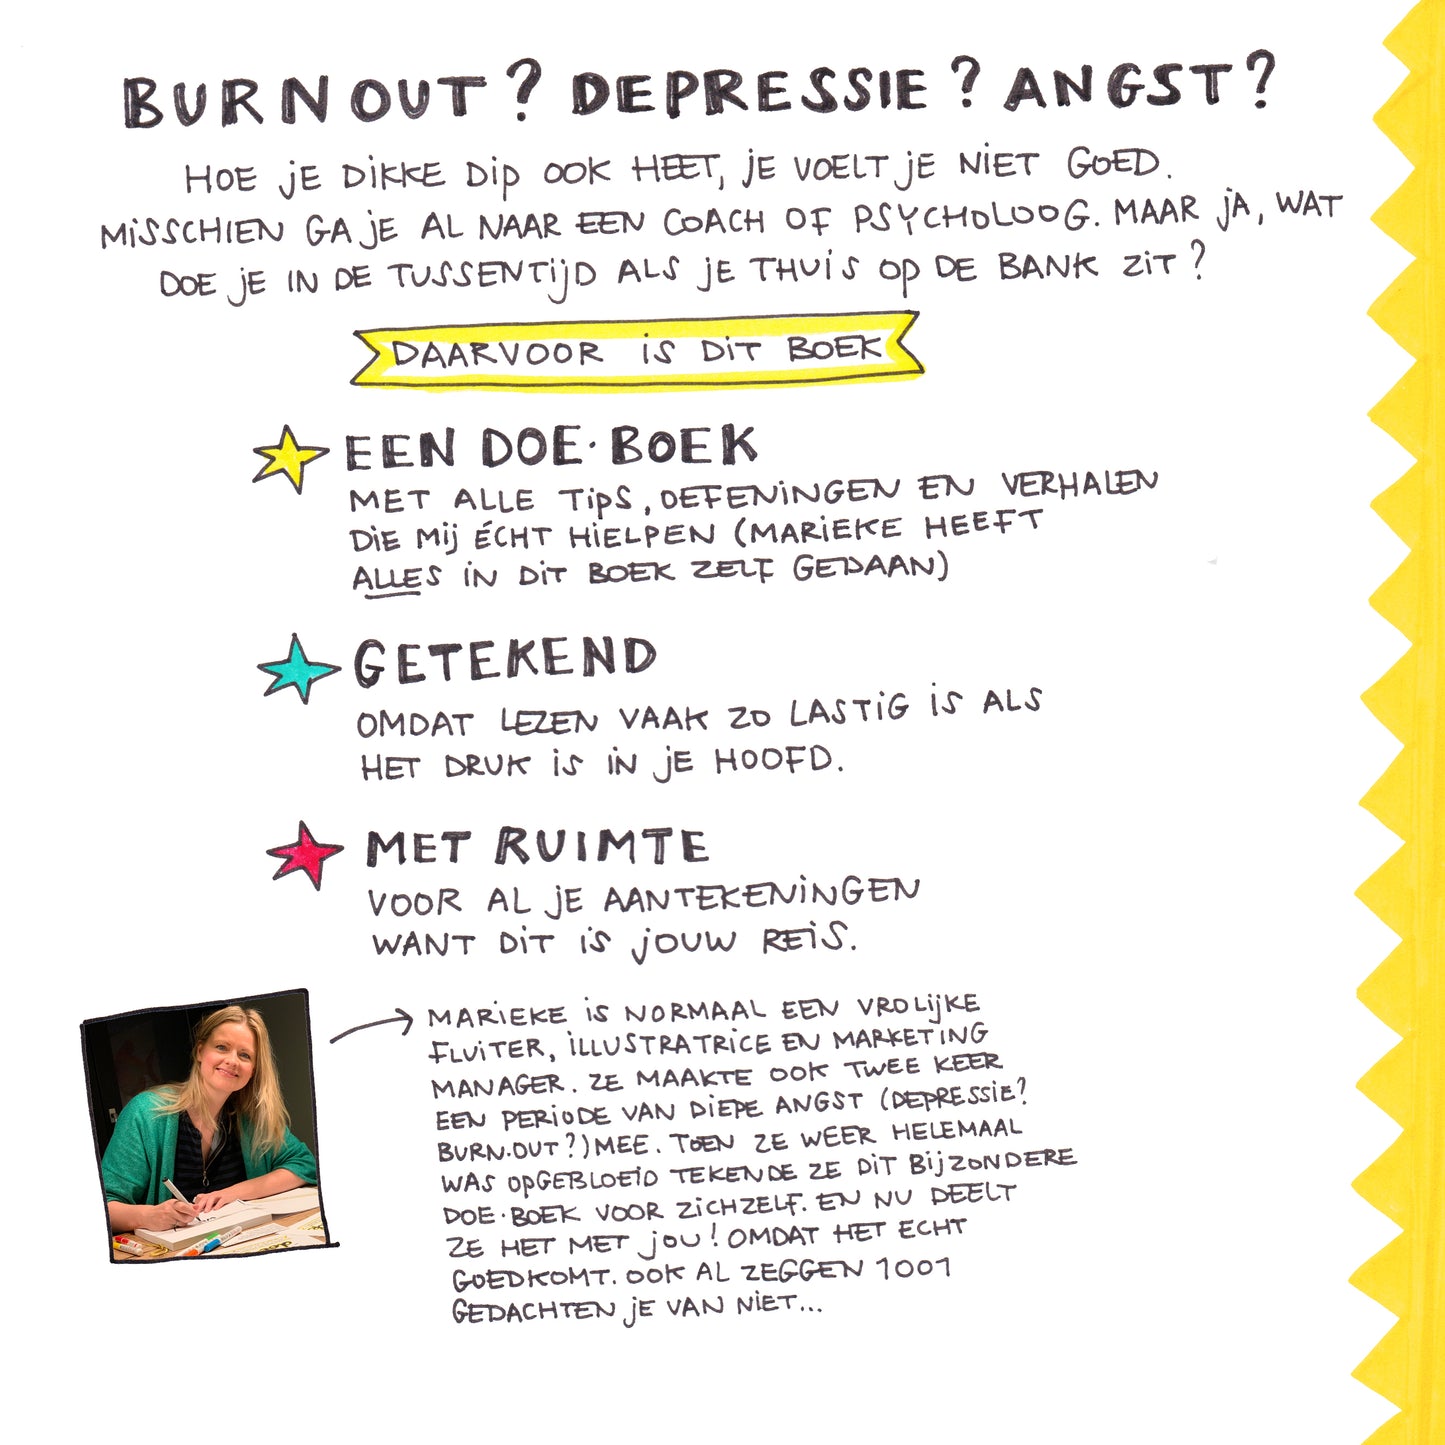 BURNOUT? DEPRESSIE? ANGST?
HOE JE DIKKE DIP OOK HEET, JE VOELT JE NIET GOED.
MISSCHIEN GA JE AL NAAR EEN COACH OF PSYCHOLOOG. MAAR JA, WAT
DOE JE IN DE TUSSENTIJD ALS JE THUIS OP DE BANK ZIT?
DAARVOOR IS DIT BOEK
EEN DOE·BOEK
MET ALLE TIPS, OEFENINGEN EN VERHALEN
DIE MIJ ÉCHT HIELPEN (MARIEKE HEEFT
ALLES IN DIT BOEK ZELF GEDAAN)
GETEKEND
OMDAT LEZEN VAAK ZO LASTIG IS ALS
HET DRUK IS IN JE HOOFD.
MET RUIMTE
VOOR AL JE AANTEKENINGEN
WANT DIT IS JOUW REIS.
MARIEKE IS NORMAAL EEN VROLIJKE
FLUITER, ILLUSTRATRICE EN MARKETING
MANAGER. ZE MAAKTE OOK TWEE KEER
EEN PERIODE VAN DIEPE ANGST (DEPRESSIE?
BURN·OUT?) MEE. TOEN ZE WEER HELEMAAL
WAS OPGEBLOEID TEKENDE ZE DIT BIJZONDERE
DOE·BOEK VOOR ZICHZELF. EN NU DEELT
ZE HET MET JOU! OMDAT HET ECHT
GOEDKOMT. OOK AL ZEGGEN 1001
GEDACHTEN JE VAN NIET...